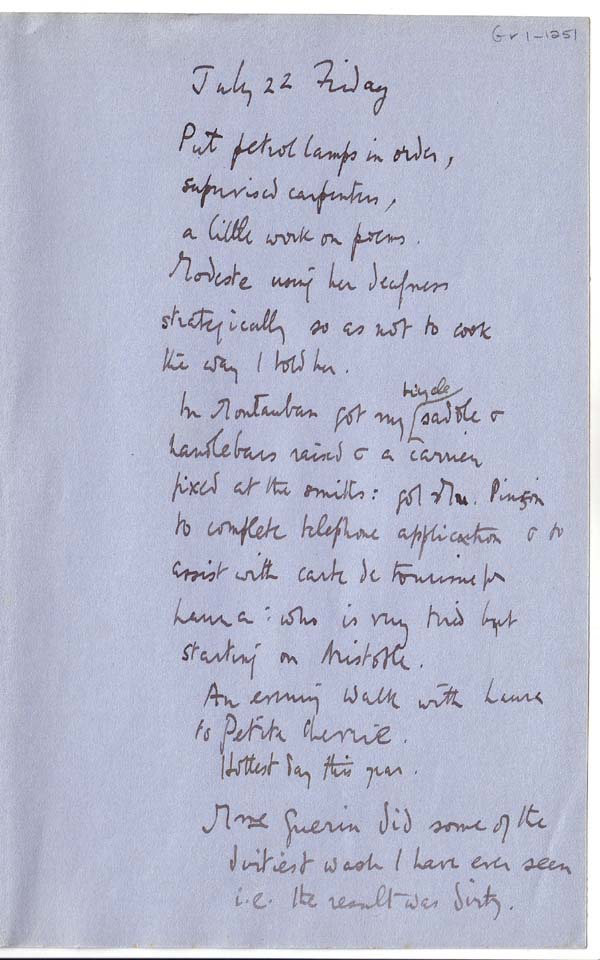 Gr1-1251
July 22 Friday
Put petrol lamps in order,
supervised carpenters,
a little work on poems.
Modeste using her deafness
strategically so as not to cook
the way I told her.
bicycle
In Montauban got my saddle &
handlebars raised & a carrier
fixed at the smiths: got Mme. Pinson
to complete telephone application & to
assist with carte de tourisme for
Laura: who is very tired but
starting on Aristotle.
An evening walk with Laura
to Petite Cherrie.
Hottest day this year.
Mme Guerin did some of the
dirtiest wash I have ever seen
i.e. the result was dirty.